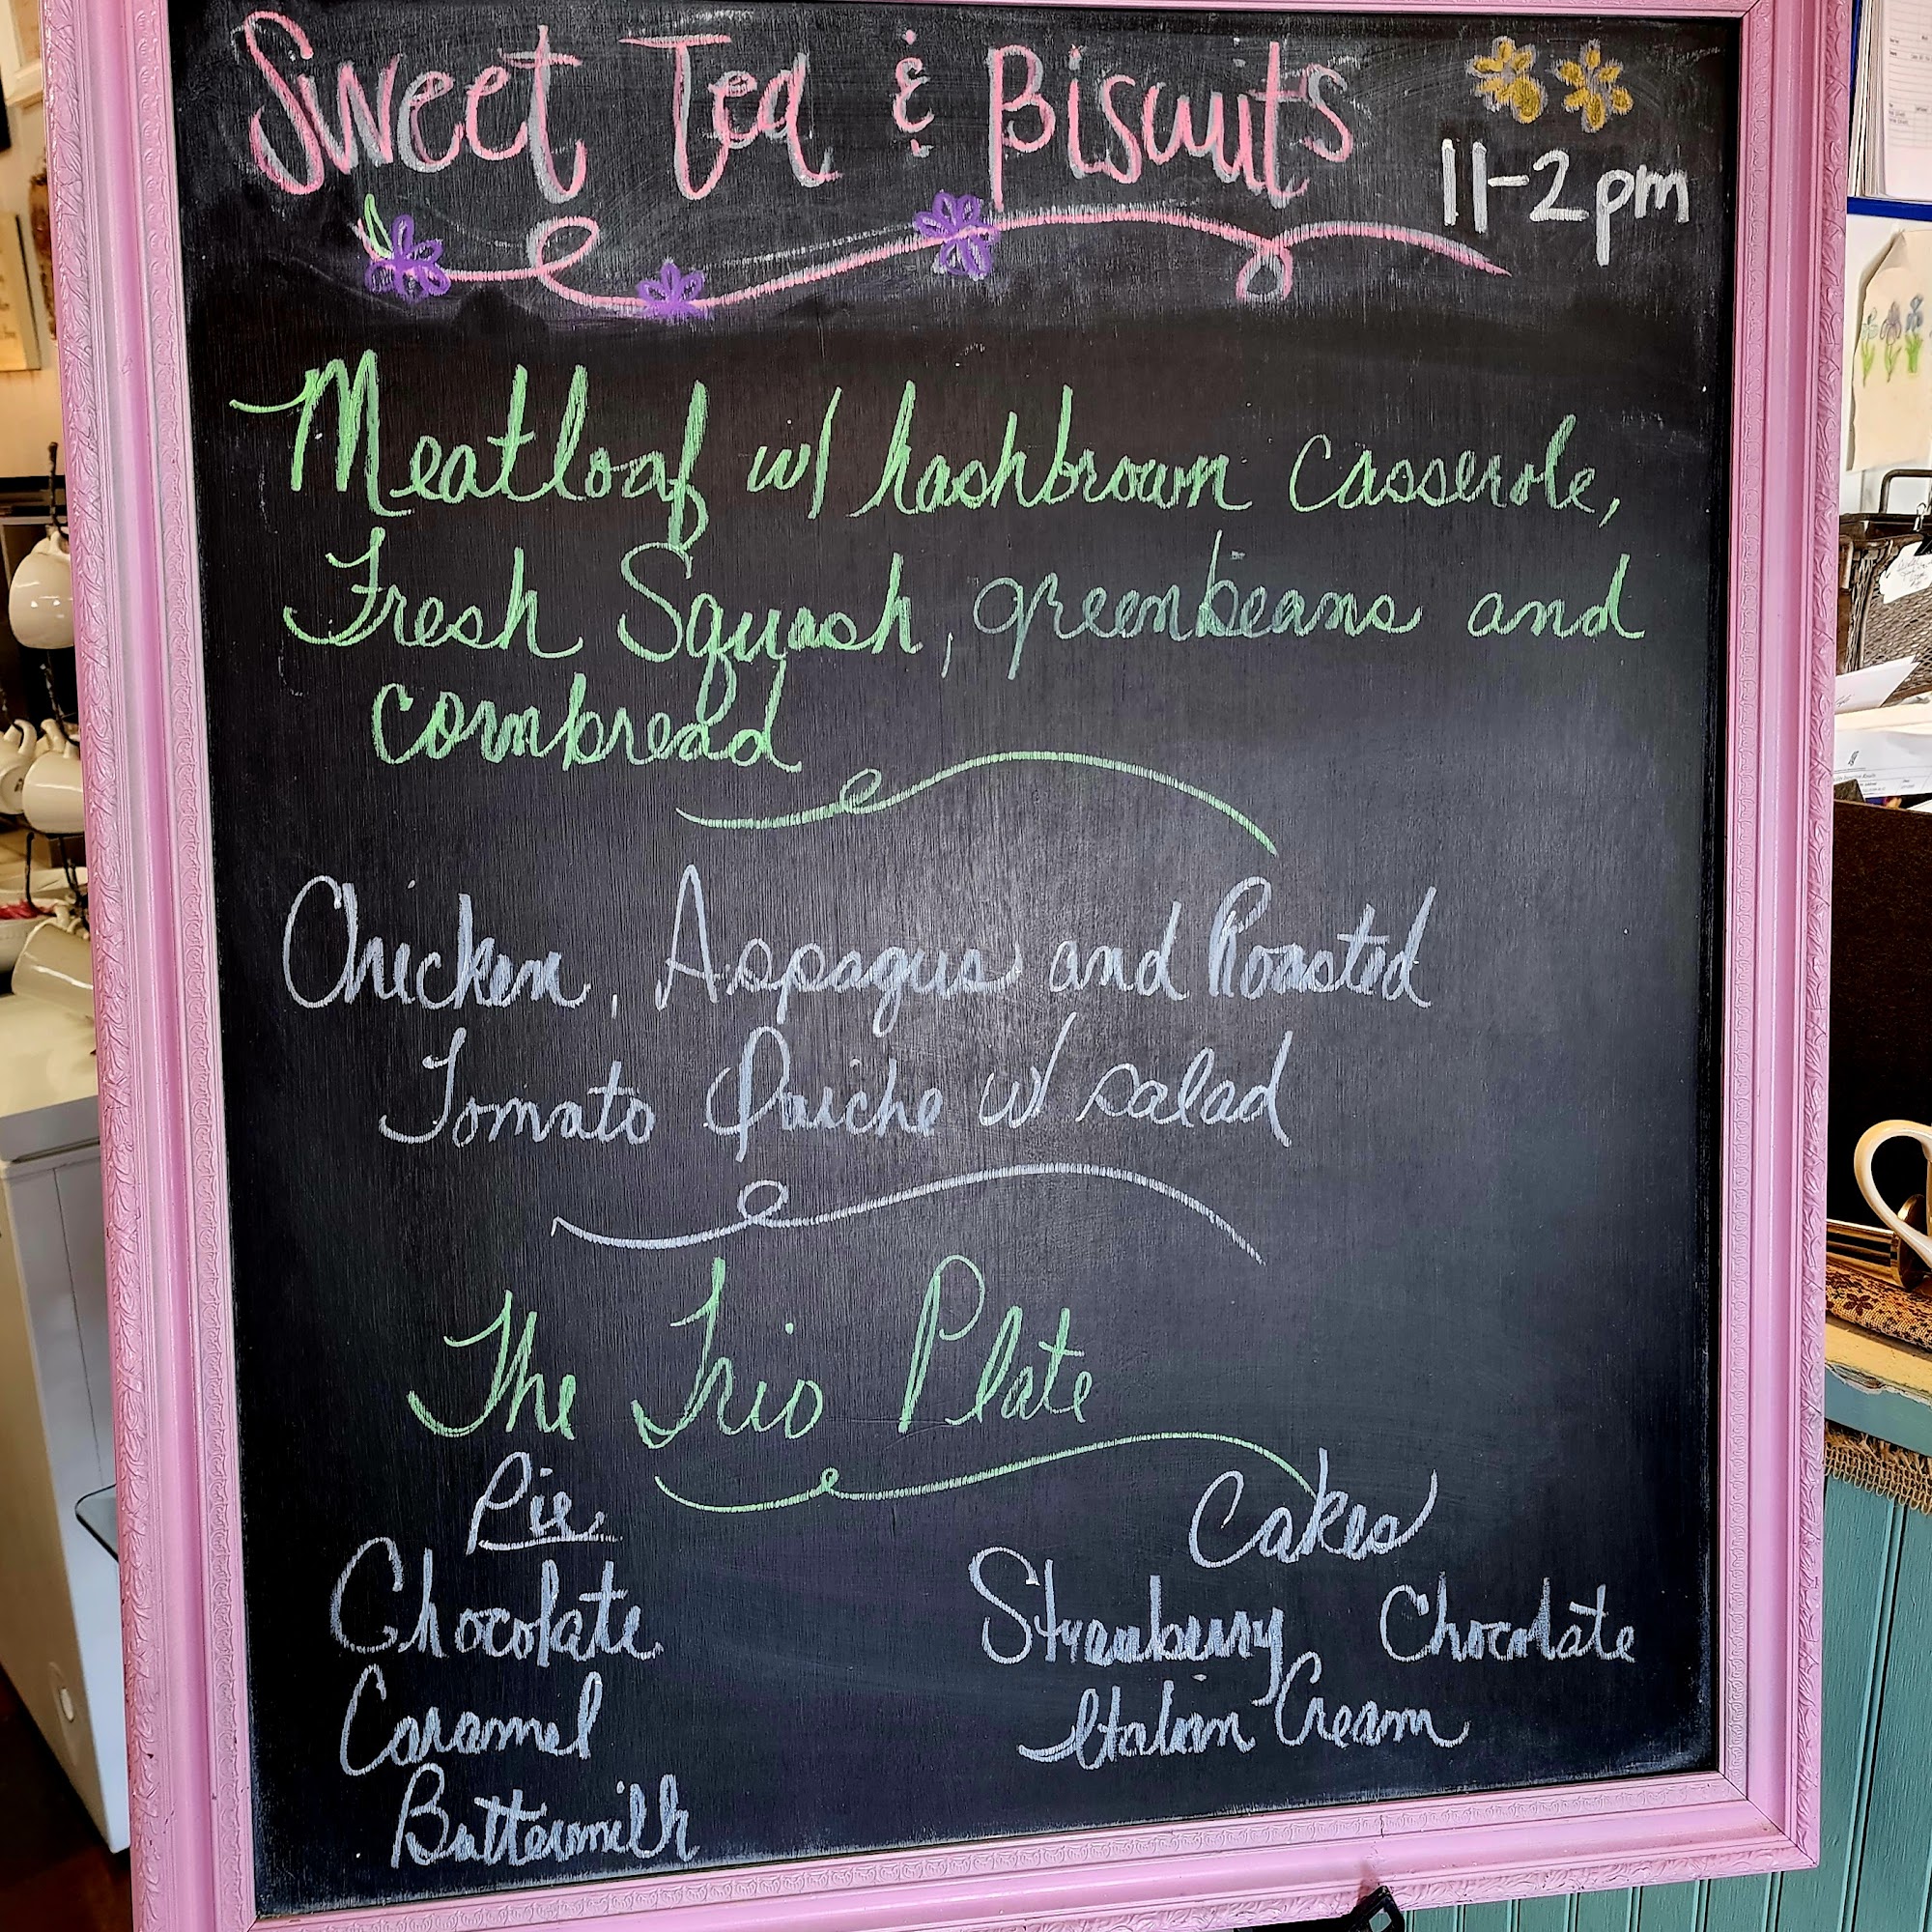 Sweet Tea & Biscuits
11-2pm
Meatloaf w/ hashbrown casserole,
Fresh Squash, greenbeans and
cornbread
Chicken, Aspagus and Roasted
Tomato Quiche w/ salad
The Trio Plate
Pie
Cakes
Chocolate
Strawberry Chocolate
Caramel
Italian Cream
Buttermilk